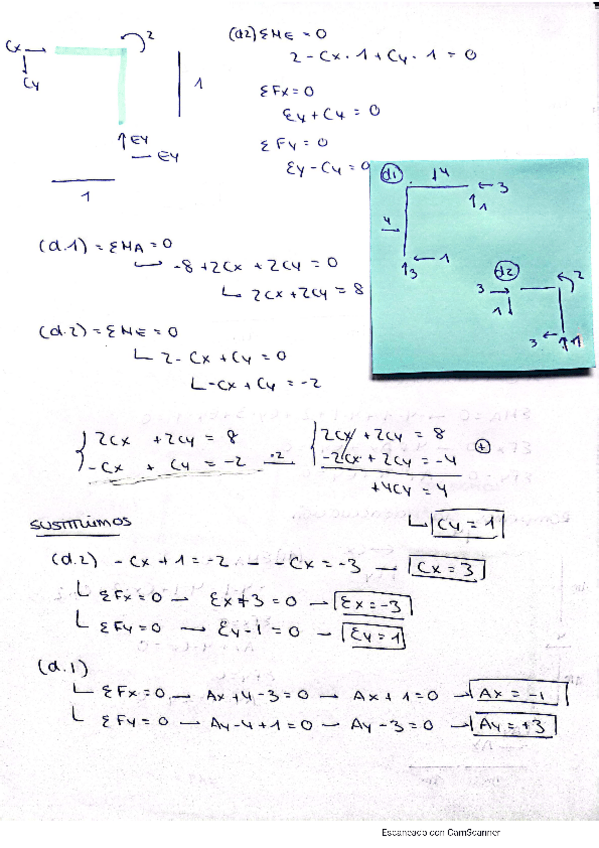 Cx
Cy
2
1
Ey
Ey
1
(d2) ΣME = 0
2 - Cx · 1 + Cy · 1 = 0
ΣFx = 0
Ey + Cy = 0
ΣFy = 0
Ey - Cy = 0
d1
4
3
1
4
1
3
d2
2
3
1
3
1
(d.1) = ΣMA = 0
-8 + 2Cx + 2Cy = 0
2Cx + 2Cy = 8
(d.2) = ΣME = 0
2 - Cx + Cy = 0
-Cx + Cy = -2
2Cx + 2Cy = 8
-Cx + Cy = -2 ·2
2Cx + 2Cy = 8
-2Cx + 2Cy = -4 +
+4Cy = 4
Cy = 1
SUSTITUIMOS
(d.2) - Cx + 1 = -2 — -Cx = -3 — Cx = 3
ΣFx = 0 — Ex + 3 = 0 — Ex = -3
ΣFy = 0 — Ey - 1 = 0 — Ey = 1
(d.1)
ΣFx = 0 — Ax + 4 - 3 = 0 — Ax + 1 = 0 — Ax = -1
ΣFy = 0 — Ay - 4 + 1 = 0 — Ay - 3 = 0 — Ay = +3
Escaneado con CamScanner